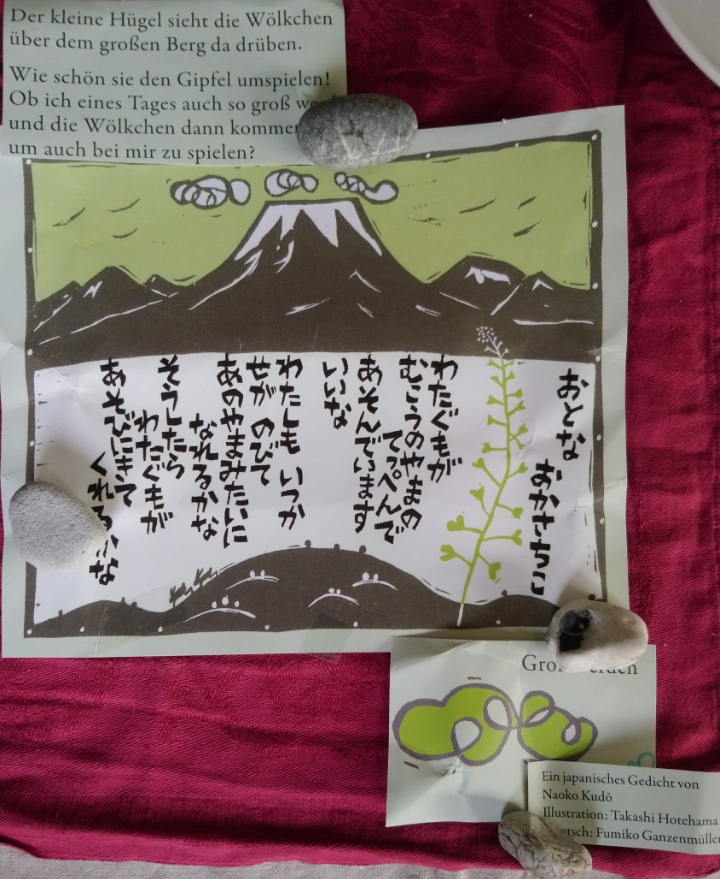 Der kleine Hügel sieht die Wölkchen
über dem großen Berg da drüben.
Wie schön sie den Gipfel umspielen!
Ob ich eines Tages auch so groß
und die Wölkchen dann kommen
um auch bei mir zu spielen?
おとな
おかさちこ
わたぐもが
むこうのやまの
てっぺんで
あそんでいます
いいな
わたしも いつか
せが のびて
あのやまみたいに
なれるかな
そうしたら
わたぐもが
あそびにきて
くれるかな
Ein japanisches Gedicht von
Naoko Kudō
Illustration: Takashi Hotehama
Fumiko Ganzenmüller